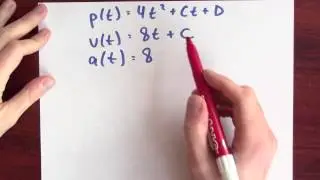 p(t) = 4t² + Ct + D
v(t) = 8t + C
a(t) = 8